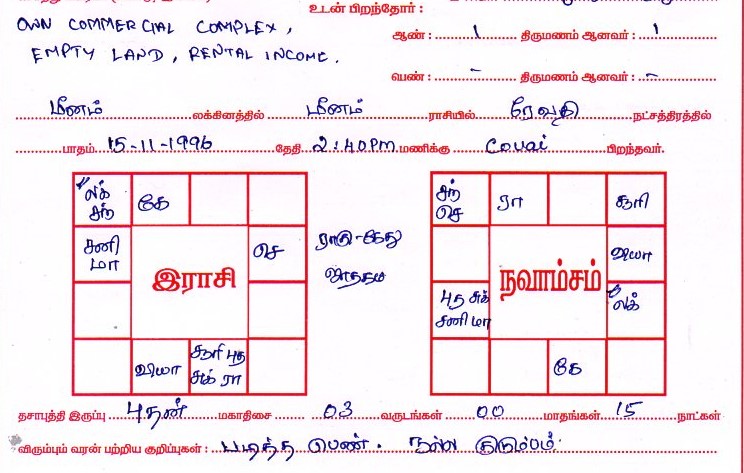 உடன் பிறந்தோர் :
OWN COMMERCIAL COMPLEX,
ஆண் : 1 திருமணம் ஆனவர் : 1
EMPTY LAND, RENTAL INCOME.
பெண் : - திருமணம் ஆனவர் : -
மீனம் லக்கினத்தில் மீனம் ராசியில் ரேவதி நட்சத்திரத்தில்
பாதம் 15-11-1996 தேதி 2:40PM மணிக்கு Covai பிறந்தவர்.
லக் சந்
கே
சனி மா
செ
இராசி
வியா
சூரி புத சுக் ரா
ராகு-கேது
சந் செ
ரா
சூரி
வியா
புத சுக் சனி மா
நவாம்சம்
லக்
கே
தசாபுத்தி இருப்பு புதன் மகாதிசை 03 வருடங்கள் 00 மாதங்கள் 15 நாட்கள்
விரும்பும் வரன் பற்றிய குறிப்புகள் : படித்த பெண். நல்ல குடும்பம்.